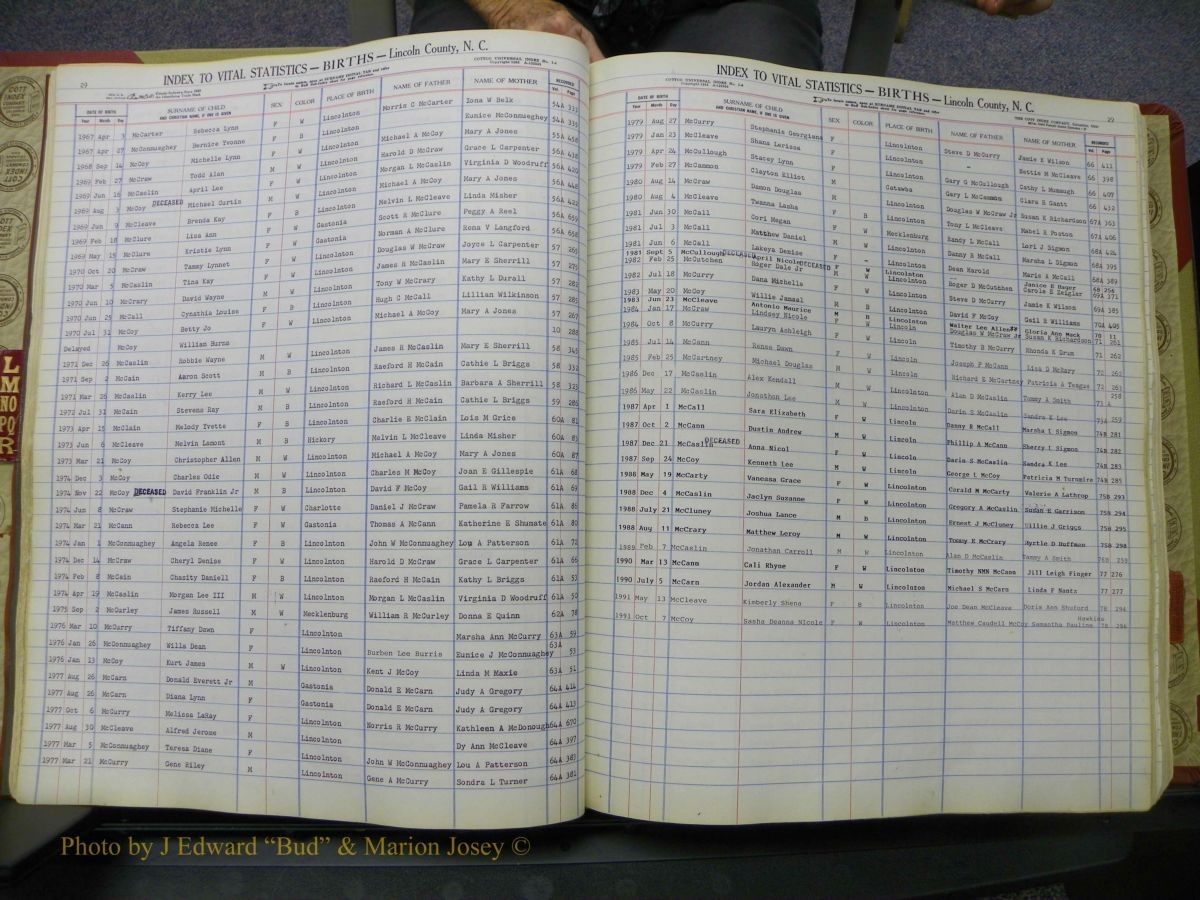 INDEX TO VITAL STATISTICS — BIRTHS — Lincoln County, N. C.
29
DATE OF BIRTH Year Month Day SURNAME OF CHILD AND CHRISTIAN NAME, IF ONE IS GIVEN SEX COLOR PLACE OF BIRTH NAME OF FATHER NAME OF MOTHER RECORDED Vol. Page
1967 Apr 3 McCarter Rebecca Lynn F W Lincolnton Morris C McCarter Iona W Belk 54A 333
1967 Apr 27 McConnughey Bernice Yvonne F Lincolnton Eunice McConnughey 54A 335
1968 Sep 14 McCoy Michelle Lynn F W Lincolnton Michael A McCoy Mary A Jones 55A 458
1969 Feb 27 McCraw Todd Alan M W Lincolnton Harold D McCraw Grace L Carpenter 56A 438
1969 Jun 16 McCaslin April Lee F W Lincolnton Morgan L McCaslin Virginia D Woodruff 56A 418
1969 Aug 3 McCoy DECEASED Michael Curtin M W Lincolnton Michael A McCoy Mary A Jones 56A 448
1969 Jun 9 McCleave Brenda Kay F B Lincolnton Melvin L McCleave Linda Misher 56A 422
1969 Feb 18 McClure Lisa Ann F W Gastonia Scott R McClure Peggy A Reel 56A 659
1969 May 15 McClure Kristie Lynn F W Gastonia Norman A McClure Rena V Langford 56A 658
1970 Oct 20 McCraw Tammy Lynnet F W Lincolnton Douglas W McCraw Joyce L Carpenter 57 265
1970 Mar 5 McCaslin Tina Kay F W Lincolnton James R McCaslin Mary E Sherrill 57 275
1970 Jun 10 McCrary David Wayne M W Lincolnton Tony W McCrary Kathy L Durall 57 282
1970 Jun 25 McCall Cynathia Louise F B Lincolnton Hugh C McCall Lillian Wilkinson 57 285
1970 Jul 31 McCoy Betty Jo F W Lincolnton Michael A McCoy Mary A Jones 57 267
Delayed McCoy William Burns 10 288
1971 Dec 26 McCaslin Robbie Wayne M W Lincolnton James R McCaslin Mary E Sherrill 58 345
1971 Sep 2 McCain Aaron Scott M B Lincolnton Raeford H McCain Cathie L Briggs 58 332
1971 Mar 26 McCaslin Kerry Lee M W Lincolnton Richard L McCaslin Barbara A Sherrill 58 323
1972 Jul 31 McCain Stevens Ray M B Lincolnton Raeford H McCain Cathie L Briggs 59 286
1973 Apr 15 McClain Melody Yvette F B Lincolnton Charlie E McClain Lois M Grice 60A 81
1973 Jun 6 McCleave Melvin Lamont M B Hickory Melvin L McCleave Linda Misher 60A 83
1973 Mar 21 McCoy Christopher Allen M W Lincolnton Michael A McCoy Mary A Jones 60A 87
1974 Dec 3 McCoy Charles Odic M W Lincolnton Charles M McCoy Joan E Gillespie 61A 68
1974 Nov 22 McCoy DECEASED David Franklin Jr M B Lincolnton David F McCoy Gail R Williams 61A 69
1974 Jun 8 McCraw Stephanie Michelle F W Charlotte Daniel J McCraw Pamela R Farrow 61A 86
1974 Mar 21 McCann Rebecca Lee F W Gastonia Thomas A McCann Katherine E Shumate 61A 80
1974 Jan 1 McConnuaghey Angela Renee F B Lincolnton John W McConnuaghey Lou A Patterson 61A 72
1974 Dec 14 McCraw Cheryl Denise F W Lincolnton Harold D McCraw Grace L Carpenter 61A 66
1974 Feb 8 McCain Chasity Daniell F B Lincolnton Raeford H McCain Kathy L Briggs 61A 53
1974 Apr 19 McCaslin Morgan Lee III M W Lincolnton Morgan L McCaslin Virginia D Woodruff 61A 50
1975 Sep 2 McCurley James Russell M W Mecklenburg William R McCurley Donna E Quinn 62A 78
1976 Mar 10 McCurry Tiffany Dawn F Lincolnton Marsha Ann McCurry 63A 59
1976 Jan 26 McConnuaghey Wills Dean F Lincolnton Burben Lee Burris Eunice J McConnuaghey 63A 53
1976 Jan 13 McCoy Kurt James M W Lincolnton Kent J McCoy Linda M Maxie 63A 51
1977 Aug 26 McCarn Donald Everett Jr M Gastonia Donald E McCarn Judy A Gregory 64A 414
1977 Aug 26 McCarn Diana Lynn F Gastonia Donald E McCarn Judy A Gregory 64A 413
1977 Oct 6 McCurry Melissa LaRay F Lincolnton Norris R McCurry Kathleen A McDonough 64A 670
1977 Aug 30 McCleave Alfred Jerome M Lincolnton Dy Ann McCleave 64A 397
1977 Mar 5 McConnuaghey Teresa Diane F Lincolnton John W McConnuaghey Lou A Patterson 64A 383
1977 Mar 21 McCurry Gene Riley M Lincolnton Gene A McCurry Sondra L Turner 64A 381
INDEX TO VITAL STATISTICS — BIRTHS — Lincoln County, N. C.
29
DATE OF BIRTH Year Month Day SURNAME OF CHILD AND CHRISTIAN NAME, IF ONE IS GIVEN SEX COLOR PLACE OF BIRTH NAME OF FATHER NAME OF MOTHER RECORDED Vol. Page
1979 Aug 27 McCurry Stephanie Georgiena F Lincolnton Steve D McCurry Jamie K Wilson 66 413
1979 Jan 23 McCleave Shana Lerissa F Lincolnton - Bettie M McCleave 66 398
1979 Apr 24 McCullough Stacey Lynn F Lincolnton Gary G McCullough Cathy L Mumaugh 66 407
1979 Feb 27 McCammon Clayton Elliot M Catawba Gary L McCammon Clara R Gantt 66 432
1980 Aug 14 McCraw Damon Douglas M Lincolnton Douglas W McCraw Jr Susan K Richardson 67A 363
1980 Aug 4 McCleave Twanna Lasha F B Lincolnton Tony L McCleave Mabel R Poston 67A 406
1981 Jun 30 McCall Cori Megan F W Mecklenburg Randy L McCall Lori J Sigmon 68A
1981 Jul 3 McCall Matthew Daniel M W Lincolnton Danny R McCall Marsha L Sigmon 68A 395
1981 Jun 6 McCall Lakeya Denise F - Lincolnton Dean Harold Maria A McCall 68A 389
1981 Sept 5 McCullough DECEASED April Nicole DECEASED F W Lincolnton Janice E Hager 68 256
1982 Feb 25 McCutchen Roger Dale Jr M W Lincolnton Roger D McCutchen Carole E Zeigler 69A 371
1982 Jul 18 McCurry Dana Michelle F W Lincolnton Steve D McCurry Jamie K Wilson 69A 385
1983 May 20 McCoy Willie Jamaal M B Lincolnton David F McCoy Gail R Williams 70A 405
1983 Jun 23 McCleave Antonio Maurice M B Lincolnton Walter Lee Allen Gloria Ann Mack 70 11
1984 Jan 17 McCraw Lindsey Nicole F W Lincoln Douglas W McCraw Jr Susan K Richardson 71 261
1984 Oct 8 McCurry Lauryn Ashleigh F W Lincoln Timothy B McCurry Rhonda K Drum 71 262
1985 Jul 14 McCann Renea Dawn F W Lincoln Joseph P McCann Lisa D McKary 72 262
1985 Feb 25 McCartney Michael Douglas M W Lincoln Richard E McCartney Patricia A Teague 72 263
1986 Dec 17 McCaslin Alex Kendall M W Lincolnton Alan D McCaslin Tammy A Smith 73 A 258
1986 May 22 McCaslin Jonathan Lee M W Lincolnton Darin S McCaslin Sandra K Lee 73A 259
1987 Apr 1 McCall Sara Elizabeth F W Lincoln Danny R McCall Marsha L Sigmon 74B 281
1987 Oct 2 McCann Dustin Andrew M W Lincoln Phillip A McCann Sherry L Sigmon 74B 282
1987 Dec 21 McCaslin DECEASED Anna Nicol F W Lincoln Darin S McCaslin Sandra K Lee 74B 283
1987 Sep 24 McCoy Kenneth Lee M W Lincoln George L McCoy Patricia M Turnmire 74B 285
1988 May 19 McCarty Vanessa Grace F W Lincoln Gerald M McCarty Valerie A Lathrop 75B 293
1988 Dec 4 McCaslin Jaclyn Suzanne F W Lincolnton Gregory A McCaslin Susan E Garrison 75B 294
1988 July 21 McCluney Joshua Lance M B Lincolnton Ernest J McCluney Willie J Griggs 75B 295
1988 Aug 11 McCrary Matthew Leroy M W Lincolnton Tommy E McCrary Myrtle D Huffman 75B 298
1989 Feb 7 McCaslin Jonathan Carroll M W Lincolnton Alan D McCaslin Tammy A Smith 76B 259
1990 Mar 13 McCann Cali Rhyne F W Lincolnton Timothy NMN McCann Jill Leigh Finger 77 276
1990 July 5 McCarn Jordan Alexander M W Lincolnton Michael S McCarn Linda F Nantz 77 277
1991 May 13 McCleave Kimberly Shena F B Lincolnton Joe Dean McCleave Doris Ann Shuford 78 294
1991 Oct 7 McCoy Sasha Deanna Nicole F W Lincolnton Matthew Caudell McCoy Samantha Pauline Hawkins 78 296
L
M
NO
PQ
R
Photo by J Edward “Bud” & Marion Josey ©